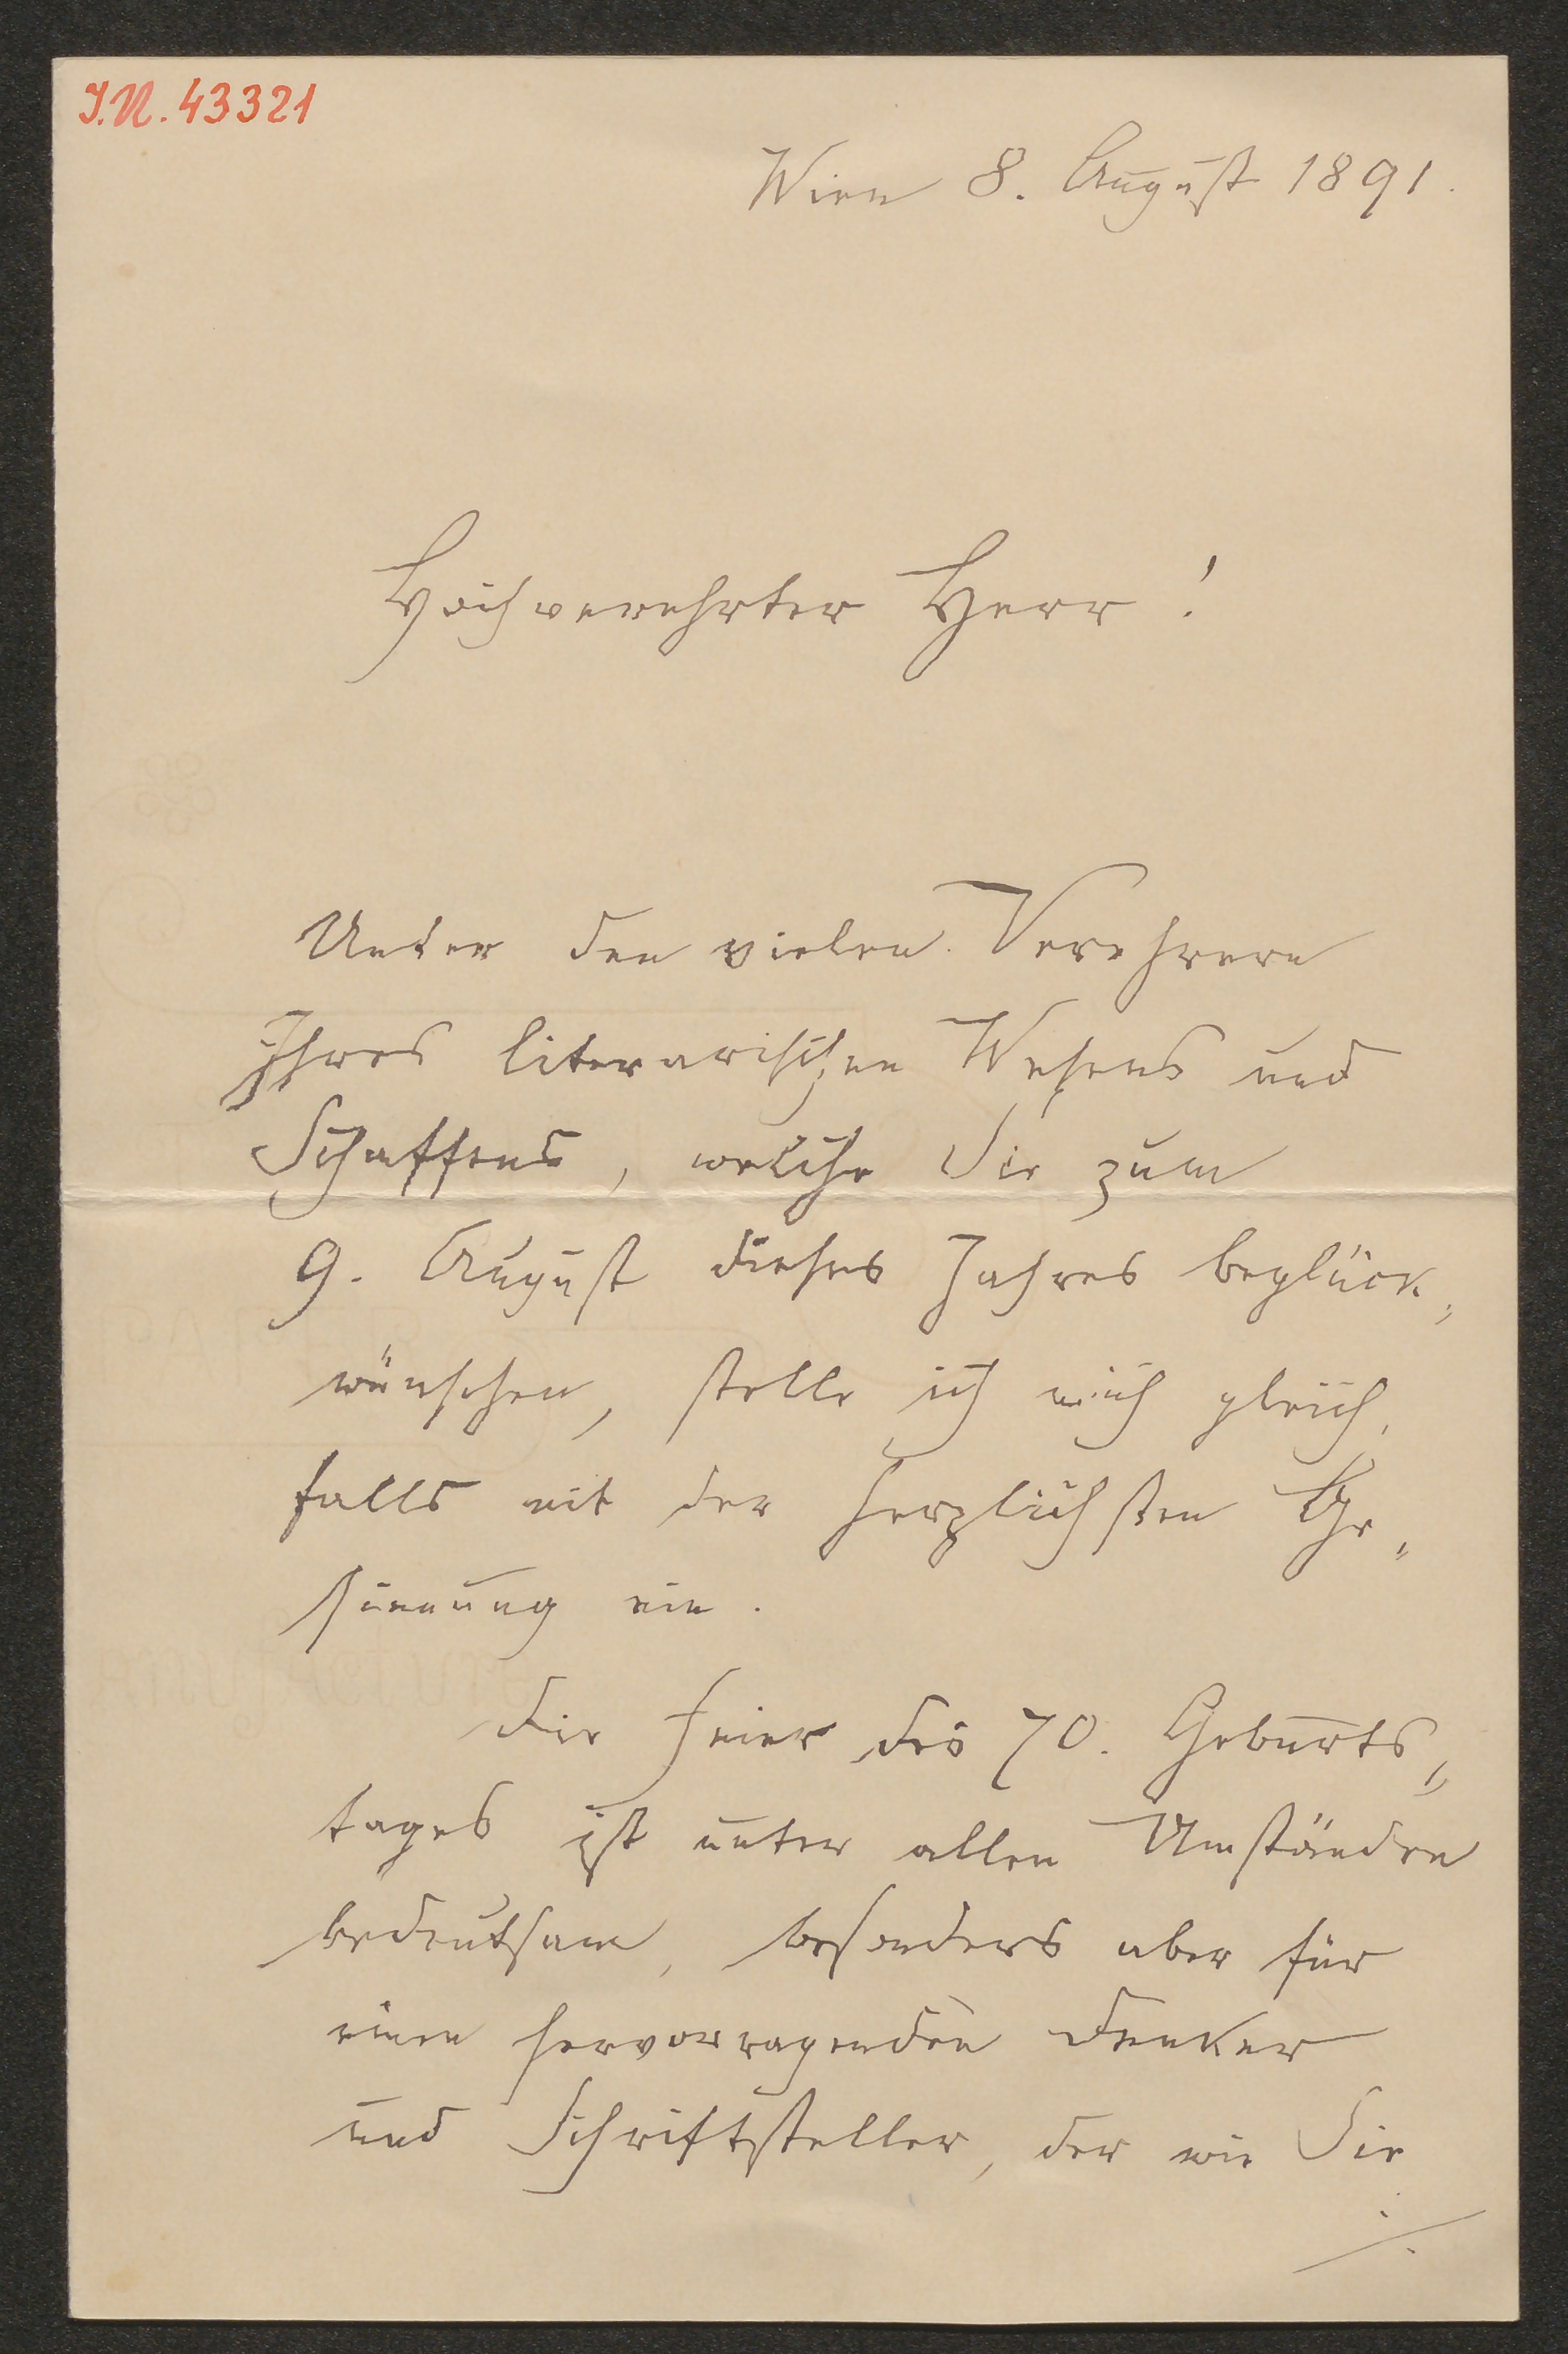 I.N. 43321
Wien 8. August 1891.
Hochverehrter Herr!
Unter den vielen Verehrern
Ihres literarischen Wesens und
Schaffens, welche Sie zum
9. August dieses Jahres beglück„
wünschen, stelle ich mich gleich„
falls mit der herzlichsten Ge„
sinnung ein.
Die Feier des 70. Geburts„
tages ist unter allen Umständen
bedeutsam, besonders aber für
einen hervorragenden Denker
und Schriftsteller, der wie Sie
./.